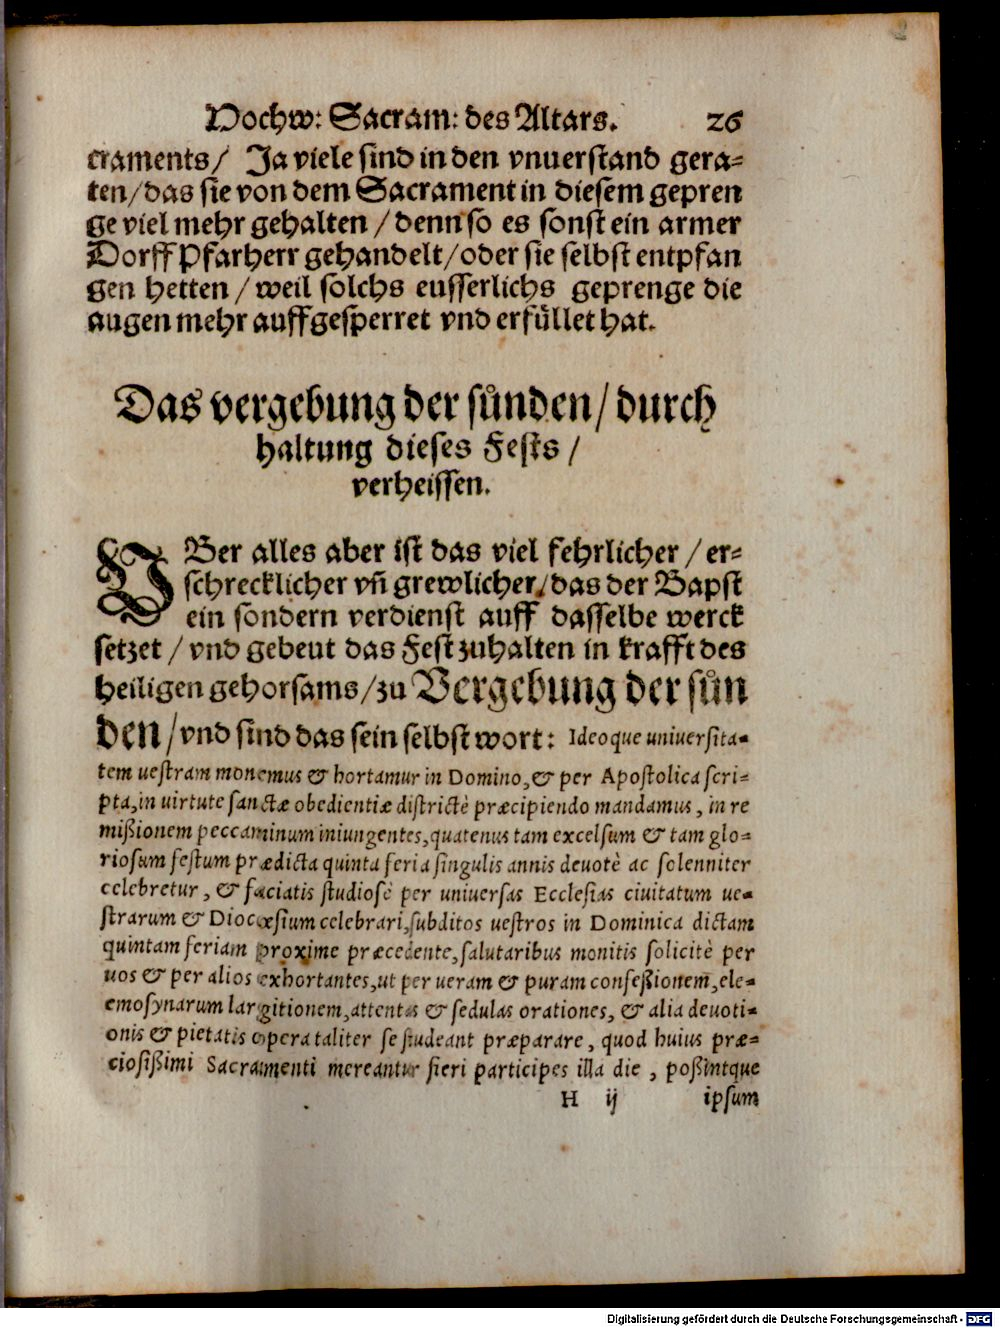 Hochw: Sacram: des Altars. 26
craments/ Ja viele sind in den vnuerstand gera-
ten/das sie von dem Sacrament in diesem gepren
ge viel mehr gehalten /denn so es sonst ein armer
Dorff Pfarherr gehandelt/oder sie selbst entpfan
gen hetten /weil solchs eusserlichs geprenge die
augen mehr auffgesperret vnd erfüllet hat.
Das vergebung der sůnden/durch
haltung dieses Fests/
verheissen.
VBer alles aber ist das viel fehrlicher /er-
schrecklicher vñ grewlicher/das der Bapst
ein sondern verdienst auff dasselbe werck
setzet /vnd gebeut das Fest zuhalten in krafft des
heiligen gehorsams/zu Vergebung der sůn
den/vnd sind das sein selbst wort: Ideoque uniuersita-
tem uestram monemus & hortamur in Domino,& per Apostolica scri-
pta,in uirtute sanctæ obedientiæ districtè præcipiendo mandamus, in re
mißionem peccaminum iniungentes,quatenus tam excelsum & tam glo-
riosum festum prædicta quinta feria singulis annis deuotè ac solenniter
celebretur, & faciatis studiosè per uniuersas Ecclesias ciuitatum ue-
strarum & Diocœsium celebrari,subditos uestros in Dominica dictam
quintam feriam proxime præcedente,salutaribus monitis solicitè per
uos & per alios exhortantes,ut per ueram & puram confeßionem,ele-
emosynarum largitionem,attentas & sedulas orationes, & alia deuoti-
onis & pietatis opera taliter se studeant præparare, quod huius præ-
ciosißimi Sacramenti mereantur fieri participes illa die, poßintque
H ij ipsum
Digitalisierung gefördert durch die Deutsche Forschungsgemeinschaft - DFG